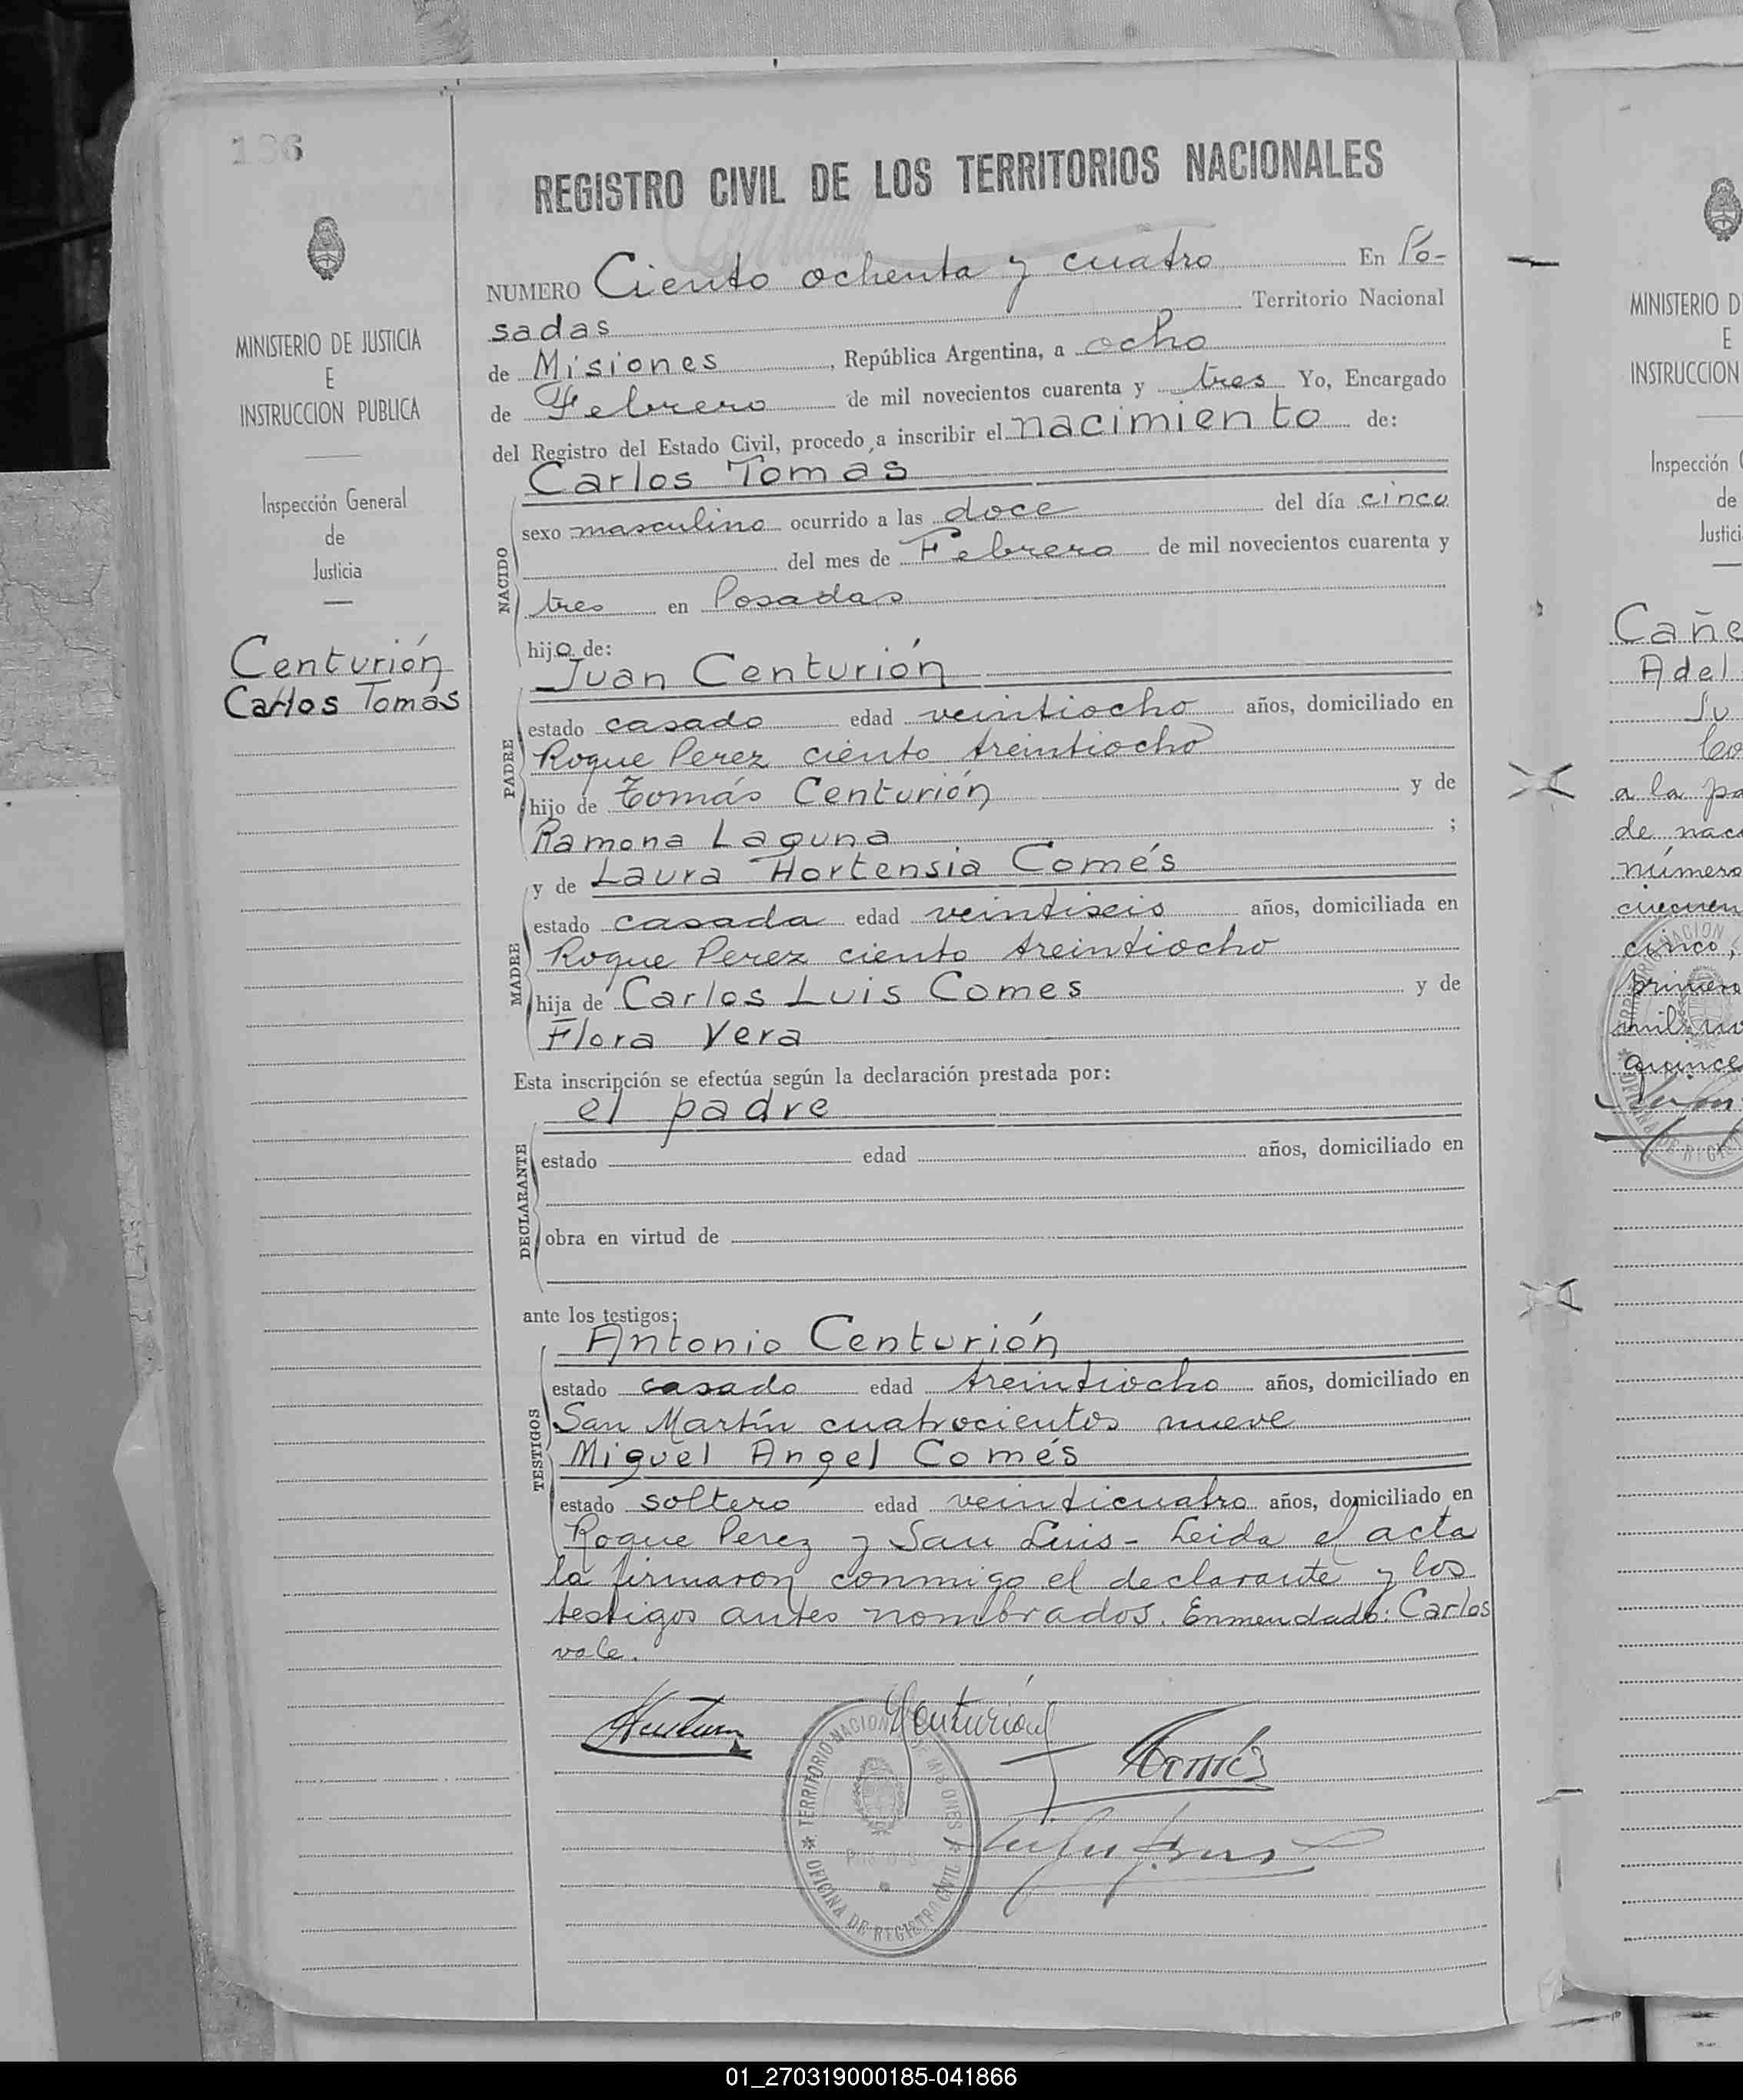 186
REGISTRO CIVIL DE LOS TERRITORIOS NACIONALES
MINISTERIO DE JUSTICIA
E
INSTRUCCION PUBLICA
Inspección General
de
Justicia
Centurión
Carlos Tomás
NUMERO Ciento ochenta y cuatro En Po-
sadas Territorio Nacional
de Misiones, República Argentina, a ocho
de Febrero de mil novecientos cuarenta y tres Yo, Encargado
del Registro del Estado Civil, procedo a inscribir el nacimiento de:
Carlos Tomás
NACIDO
sexo masculino ocurrido a las doce del día cinco
del mes de Febrero de mil novecientos cuarenta y
tres en Posadas
hijo de:
Juan Centurión
PADRE
estado casado edad veintiocho años, domiciliado en
Roque Perez ciento treintiocho
hijo de Tomás Centurión y de
Ramona Laguna ;
y de Laura Hortensia Comés
MADRE
estado casada edad veintiseis años, domiciliada en
Roque Perez ciento treintiocho
hija de Carlos Luis Comes y de
Flora Vera
Esta inscripción se efectúa según la declaración prestada por:
el padre
DECLARANTE
estado edad años, domiciliado en
obra en virtud de
ante los testigos:
Antonio Centurión
TESTIGOS
estado casado edad treintiocho años, domiciliado en
San Martín cuatrocientos nueve
Miguel Angel Comés
estado soltero edad veinticuatro años, domiciliado en
Roque Perez y San Luis - Leida el acta
la firmaron conmigo el declarante y los
testigos antes nombrados. Enmendado: Carlos
vale.
Centurión
Comés
TERRITORIO NACIONAL DE MISIONES
OFICINA DE REGISTRO CIVIL
MINISTERIO D
E
INSTRUCCION
Inspección
de
Justici
Cañe
Adel
a la pa
de naci
número
cinco,
primero
mil no
quince
01_270319000185-041866